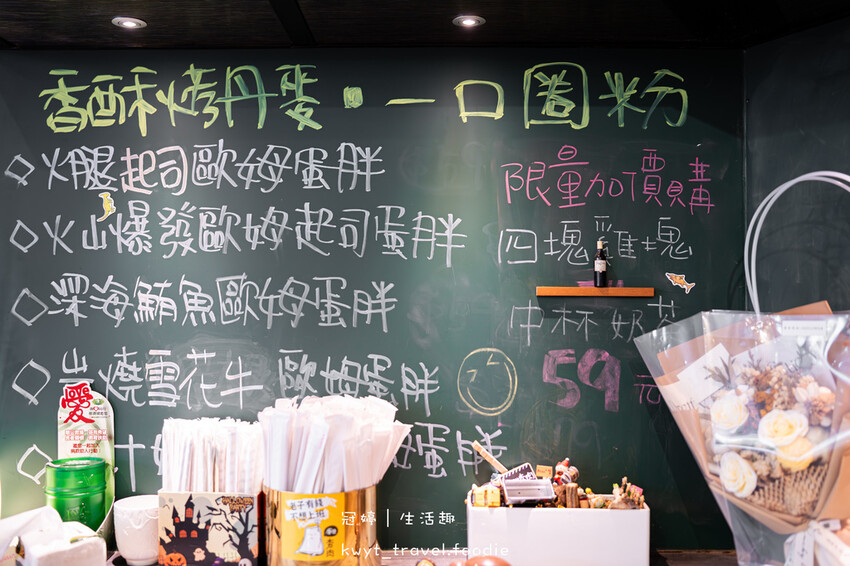 香酥秋烤丹麥・一口圈粉
◇火腿起司歐姆蛋胖
◇火山爆發歐姆起司蛋胖
◇深海鮪魚歐姆蛋胖
◇岩燒雪花牛 歐姆蛋胖
◇十 蛋胖
限量加價購
四塊雞塊
中杯奶茶
59元
愛
冠婷 | 生活趣
kwyt_travel.foodie